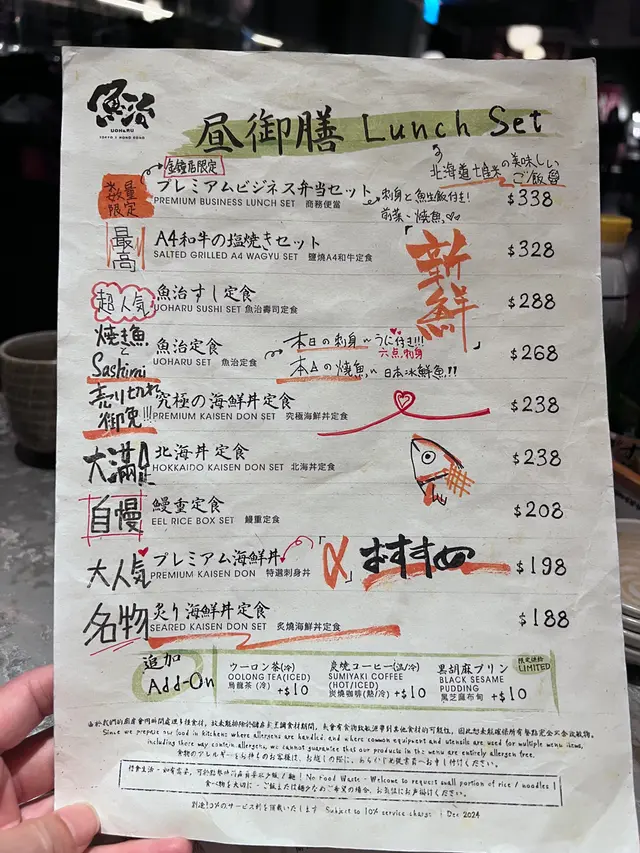 魚治
UOHARU
TOKYO | HONG KONG
昼御膳 Lunch Set
金鐘店限定
北海道七星米の美味しい
ご飯
数量
限定
プレミアムビジネス弁当セット
PREMIUM BUSINESS LUNCH SET 商務便當
刺身と魚生飯付き!
前菜、焼魚
$338
最高
A4和牛の塩焼きセット
SALTED GRILLED A4 WAGYU SET 鹽燒A4和牛定食
$328
「新鮮」
超人気
魚治すし定食
UOHARU SUSHI SET 魚治壽司定食
$288
焼き魚
と
Sashimi
魚治定食
UOHARU SET 魚治定食
本日の刺身 うに付き!!!
六点刺身
本日の焼魚 日本冰鮮魚!!
$268
売り切れ
御免!!!
究極の海鮮丼定食
PREMIUM KAISEN DON SET 究極海鮮丼定食
$238
大満足
北海丼定食
HOKKAIDO KAISEN DON SET 北海丼定食
$238
自慢
鰻重定食
EEL RICE BOX SET 鰻重定食
$208
大人気
プレミアム海鮮丼
PREMIUM KAISEN DON 特選刺身丼
おすすめ
$198
名物
炙り海鮮丼定食
SEARED KAISEN DON SET 炙燒海鮮丼定食
$188
追加
Add-On
ウーロン茶(冷)
OOLONG TEA(ICED)
烏龍茶(冷) +$10
炭焼コーヒー(温/冷)
SUMIYAKI COFFEE
(HOT/ICED)
炭燒咖啡(熱/冷) +$10
黒胡麻プリン
BLACK SESAME
PUDDING
黑芝麻布甸 +$10
限定供給
LIMITED
由於我們的廚房會同時間處理多種食材,
Since we prepare our food in kitchens where allergens are handled and where common equipment and utensils are used for multiple menu items,
including these may contain allergens, we cannot guarantee that our products in the menu are entirely allergen free.
食物のアレルギーをお持ちのお客様は、お越しの際に、あらかじめ従業員へお申し付けください。
No Food Waste - Welcome to request small portion of rice / noodles |
Subject to 10% service charge | Dec 2024